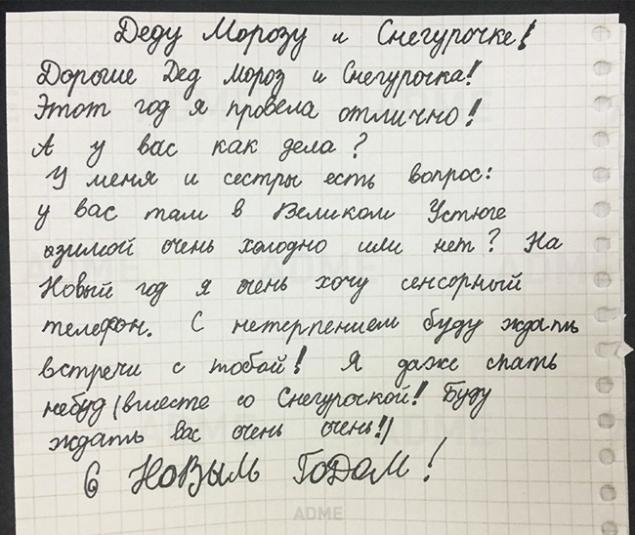 Деду Морозу и Снегурочке!
Дорогие Дед Мороз и Снегурочка!
Этот год я провела отлично!
А у вас как дела?
У меня и сестры есть вопрос:
у вас там в Великом Устюге
зимой очень холодно или нет? На
Новый год я очень хочу сенсорный
телефон. С нетерпением буду ждать
встречи с тобой! Я даже спать
небуд (вместе со Снегурочкой! Буду
ждать вас очень очень!!)
С Новым Годом!
ADME